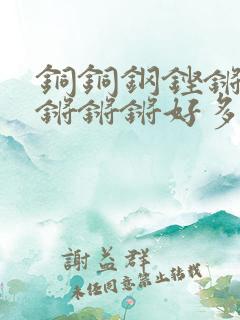 銅銅鋼鏗鏘
鏘鏘鏘好多
謝益群
未经同意禁止转载